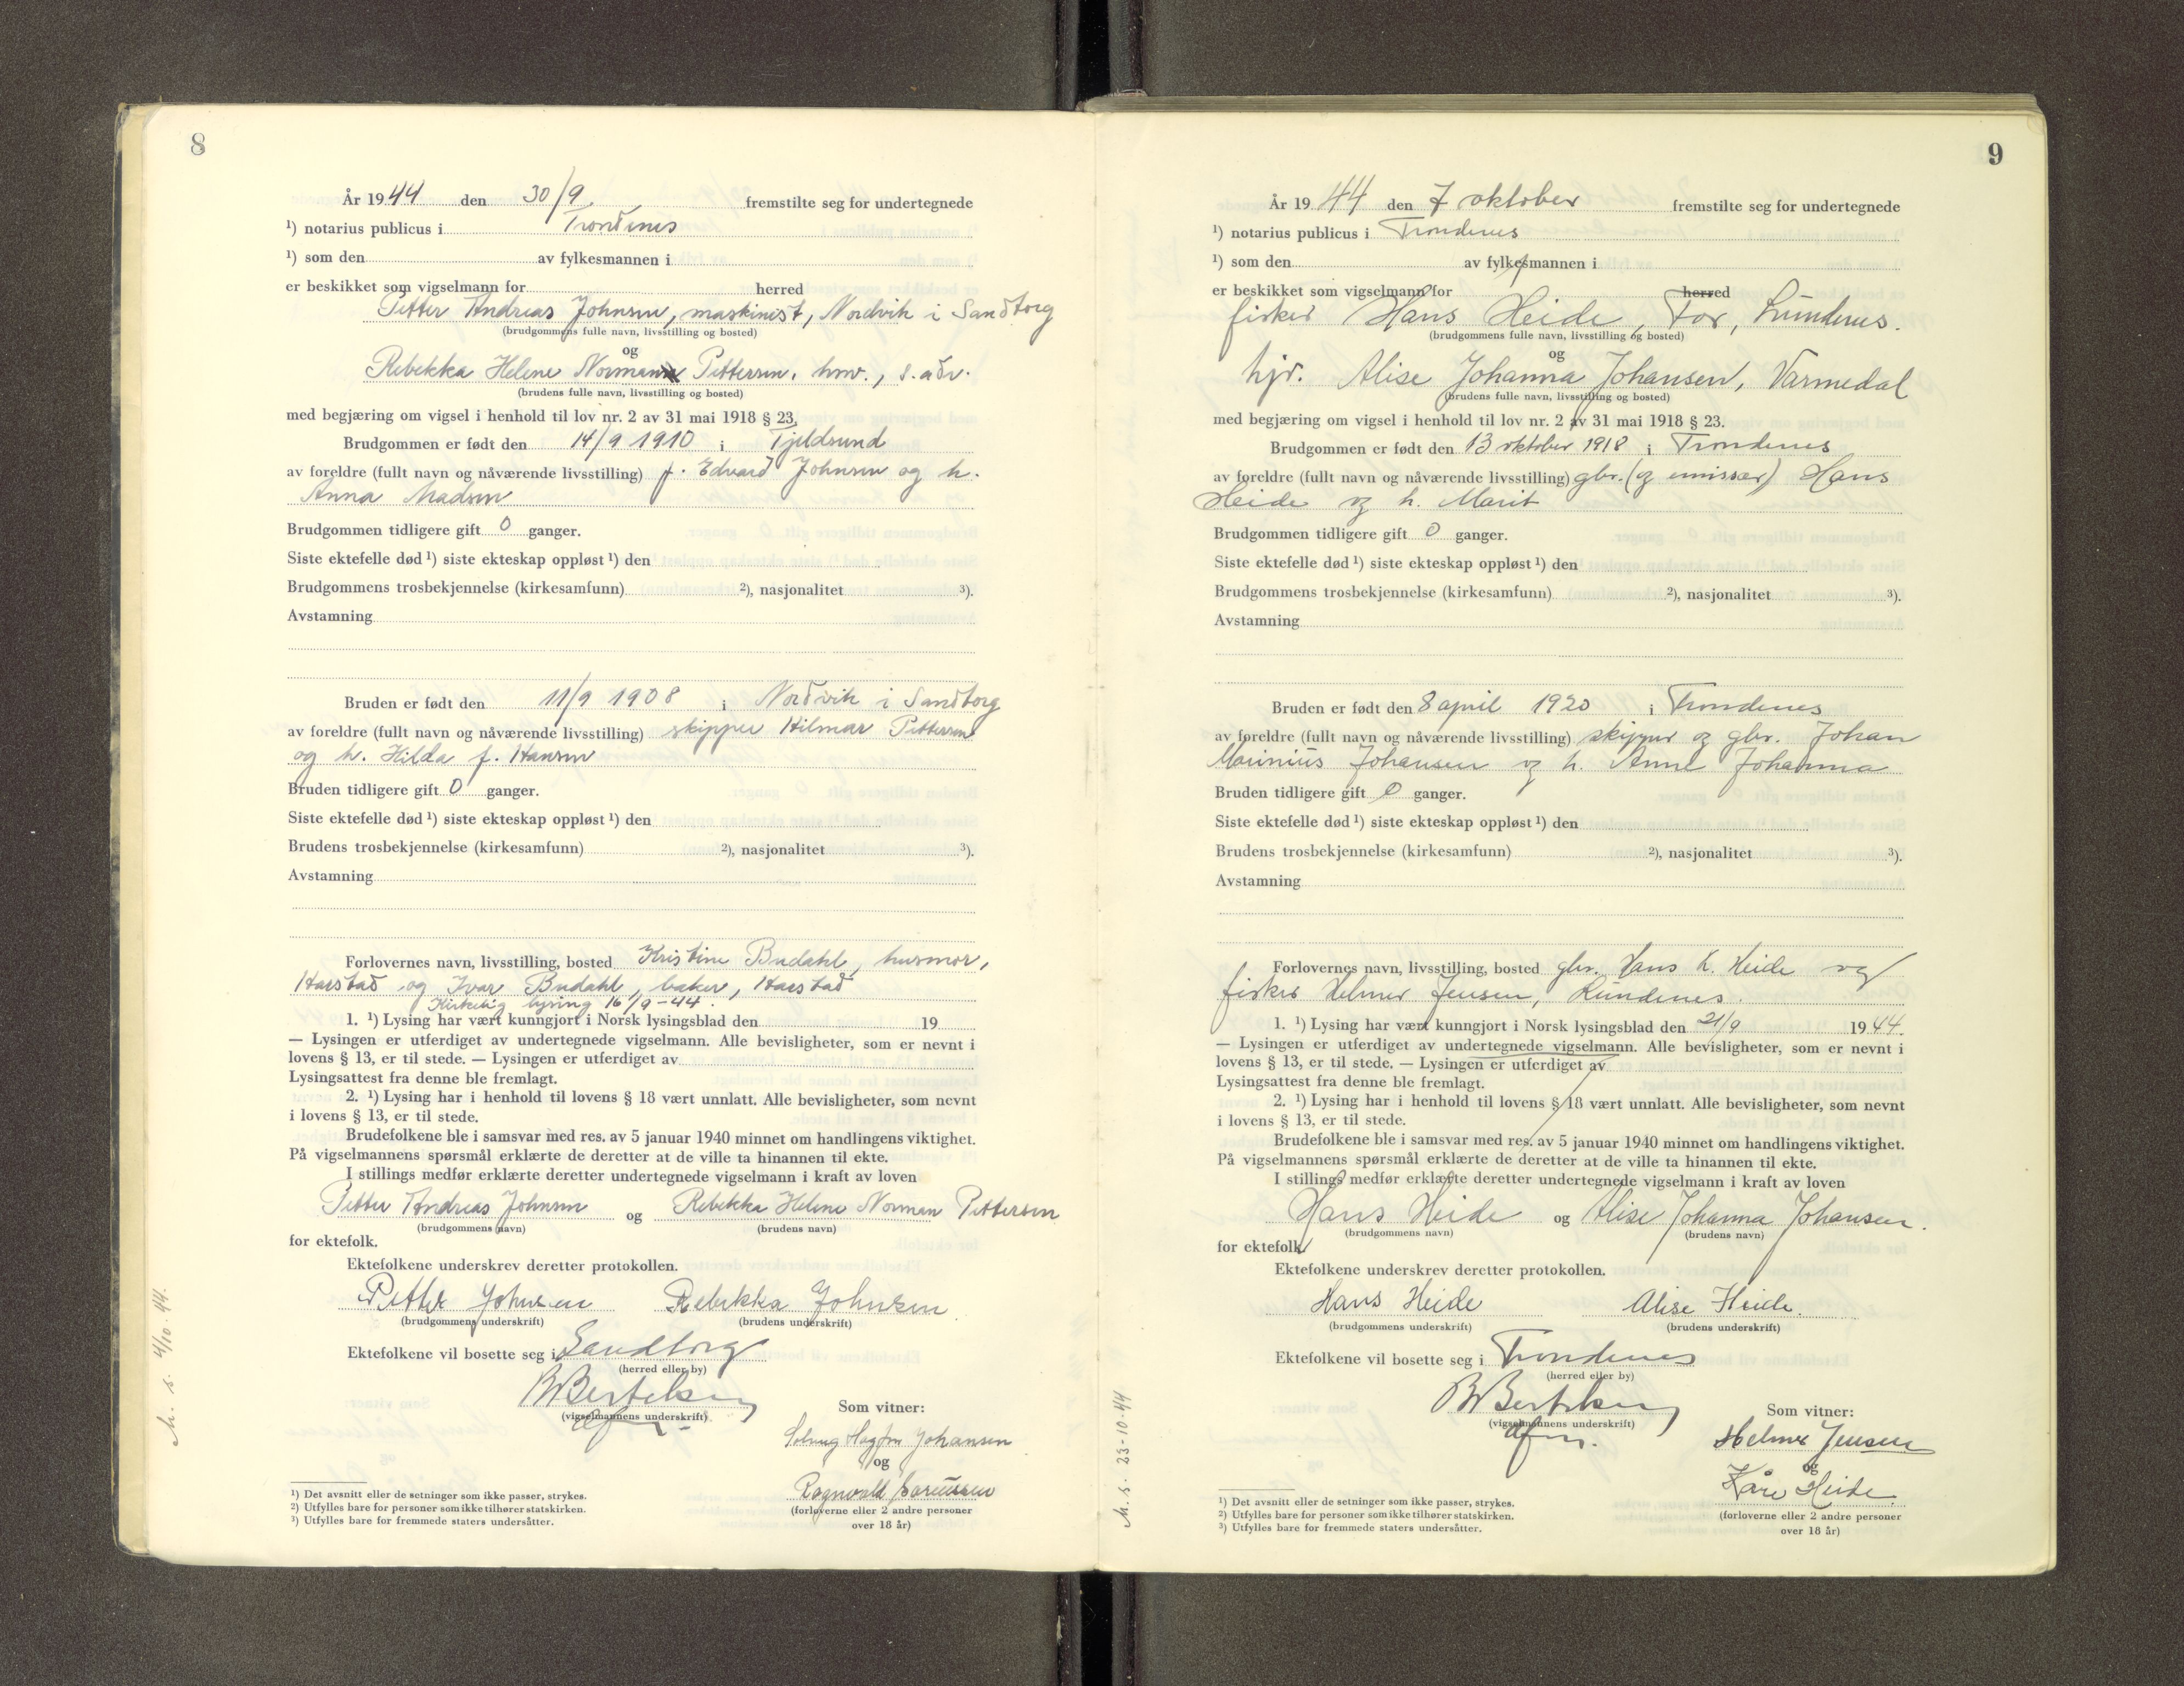 8
År 1944 den 30/9 fremstilte seg for undertegnede
¹) notarius publicus i Trondenes
¹) som den av fylkesmannen i
er beskikket som vigselmann for herred
Petter Andreas Johnsen, maskinist, Nordvik i Sandtorg
(brudgommens fulle navn, livsstilling og bosted)
og
Rebekka Helene Norman Pettersen, hmv., s. adr.
(brudens fulle navn, livsstilling og bosted)
med begjæring om vigsel i henhold til lov nr. 2 av 31 mai 1918 § 23.
Brudgommen er født den 14/9 1910 i Tjeldsund
av foreldre (fullt navn og nåværende livsstilling) f. Edvard Johnsen og h.
Anna Madsen
Brudgommen tidligere gift 0 ganger.
Siste ektefelle død ¹) siste ekteskap oppløst ¹) den
Brudgommens trosbekjennelse (kirkesamfunn) ²), nasjonalitet ³).
Avstamning
Bruden er født den 11/9 1908 i Nordvik i Sandtorg
av foreldre (fullt navn og nåværende livsstilling) skipper Hilmar Pettersen
og h. Hilda f. Hansen
Bruden tidligere gift 0 ganger.
Siste ektefelle død ¹) siste ekteskap oppløst ¹) den
Brudens trosbekjennelse (kirkesamfunn) ²), nasjonalitet ³).
Avstamning
Forlovernes navn, livsstilling, bosted Kristine Budahl, husmor,
Harstad og Ivar Budahl, baker, Harstad
Kirkelig lysing 16/9-44.
1. ¹) Lysing har vært kunngjort i Norsk lysingsblad den 19
— Lysingen er utferdiget av undertegnede vigselmann. Alle bevisligheter, som er nevnt i
lovens § 13, er til stede. — Lysingen er utferdiget av
Lysingsattest fra denne ble fremlagt.
2. ¹) Lysing har i henhold til lovens § 18 vært unnlatt. Alle bevisligheter, som nevnt
i lovens § 13, er til stede.
Brudefolkene ble i samsvar med res. av 5 januar 1940 minnet om handlingens viktighet.
På vigselmannens spørsmål erklærte de deretter at de ville ta hinannen til ekte.
I stillings medfør erklærte deretter undertegnede vigselmann i kraft av loven
Petter Andreas Johnsen og Rebekka Helene Norman Pettersen
(brudgommens navn) (brudens navn)
for ektefolk.
Ektefolkene underskrev deretter protokollen.
Petter Johnsen Rebekka Johnsen
(brudgommens underskrift) (brudens underskrift)
Ektefolkene vil bosette seg i Sandtorg
(herred eller by)
B Bertelsen
(vigselmannens underskrift)
Som vitner:
Johansen
og
Ragnvald
(forloverne eller 2 andre personer
over 18 år)
¹) Det avsnitt eller de setninger som ikke passer, strykes.
²) Utfylles bare for personer som ikke tilhører statskirken.
³) Utfylles bare for fremmede staters undersåtter.
M. s. 4/10-44.
9
År 1944 den 7 oktober fremstilte seg for undertegnede
¹) notarius publicus i Trondenes
¹) som den av fylkesmannen i
er beskikket som vigselmann for herred
fisker Hans Heide,
(brudgommens fulle navn, livsstilling og bosted)
og
Alise Johanna Johansen, Varmedal
(brudens fulle navn, livsstilling og bosted)
med begjæring om vigsel i henhold til lov nr. 2 av 31 mai 1918 § 23.
Brudgommen er født den 13 oktober 1918 i Trondenes
av foreldre (fullt navn og nåværende livsstilling) gbr. (og emissær) Hans
Heide og h. Marit
Brudgommen tidligere gift 0 ganger.
Siste ektefelle død ¹) siste ekteskap oppløst ¹) den
Brudgommens trosbekjennelse (kirkesamfunn) ²), nasjonalitet ³).
Avstamning
Bruden er født den 8 april 1920 i Trondenes
av foreldre (fullt navn og nåværende livsstilling) skipper og gbr. Johan
Marinius Johansen og h. Anne Johanna
Bruden tidligere gift 0 ganger.
Siste ektefelle død ¹) siste ekteskap oppløst ¹) den
Brudens trosbekjennelse (kirkesamfunn) ²), nasjonalitet ³).
Avstamning
Forlovernes navn, livsstilling, bosted gbr. Hans K. Heide og
fisker Helmer Jensen,
1. ¹) Lysing har vært kunngjort i Norsk lysingsblad den 21/9 1944.
— Lysingen er utferdiget av undertegnede vigselmann. Alle bevisligheter, som er nevnt i
lovens § 13, er til stede. — Lysingen er utferdiget av
Lysingsattest fra denne ble fremlagt.
2. ¹) Lysing har i henhold til lovens § 18 vært unnlatt. Alle bevisligheter, som nevnt
i lovens § 13, er til stede.
Brudefolkene ble i samsvar med res. av 5 januar 1940 minnet om handlingens viktighet.
På vigselmannens spørsmål erklærte de deretter at de ville ta hinannen til ekte.
I stillings medfør erklærte deretter undertegnede vigselmann i kraft av loven
Hans Heide og Alise Johanna Johansen.
(brudgommens navn) (brudens navn)
for ektefolk.
Ektefolkene underskrev deretter protokollen.
Hans Heide Alise Heide.
(brudgommens underskrift) (brudens underskrift)
Ektefolkene vil bosette seg i Trondenes
(herred eller by)
B Bertelsen
(vigselmannens underskrift)
Som vitner:
Helmer Jensen
og
Kåre Heide.
(forloverne eller 2 andre personer
over 18 år)
¹) Det avsnitt eller de setninger som ikke passer, strykes.
²) Utfylles bare for personer som ikke tilhører statskirken.
³) Utfylles bare for fremmede staters undersåtter.
M. s. 23-10-44